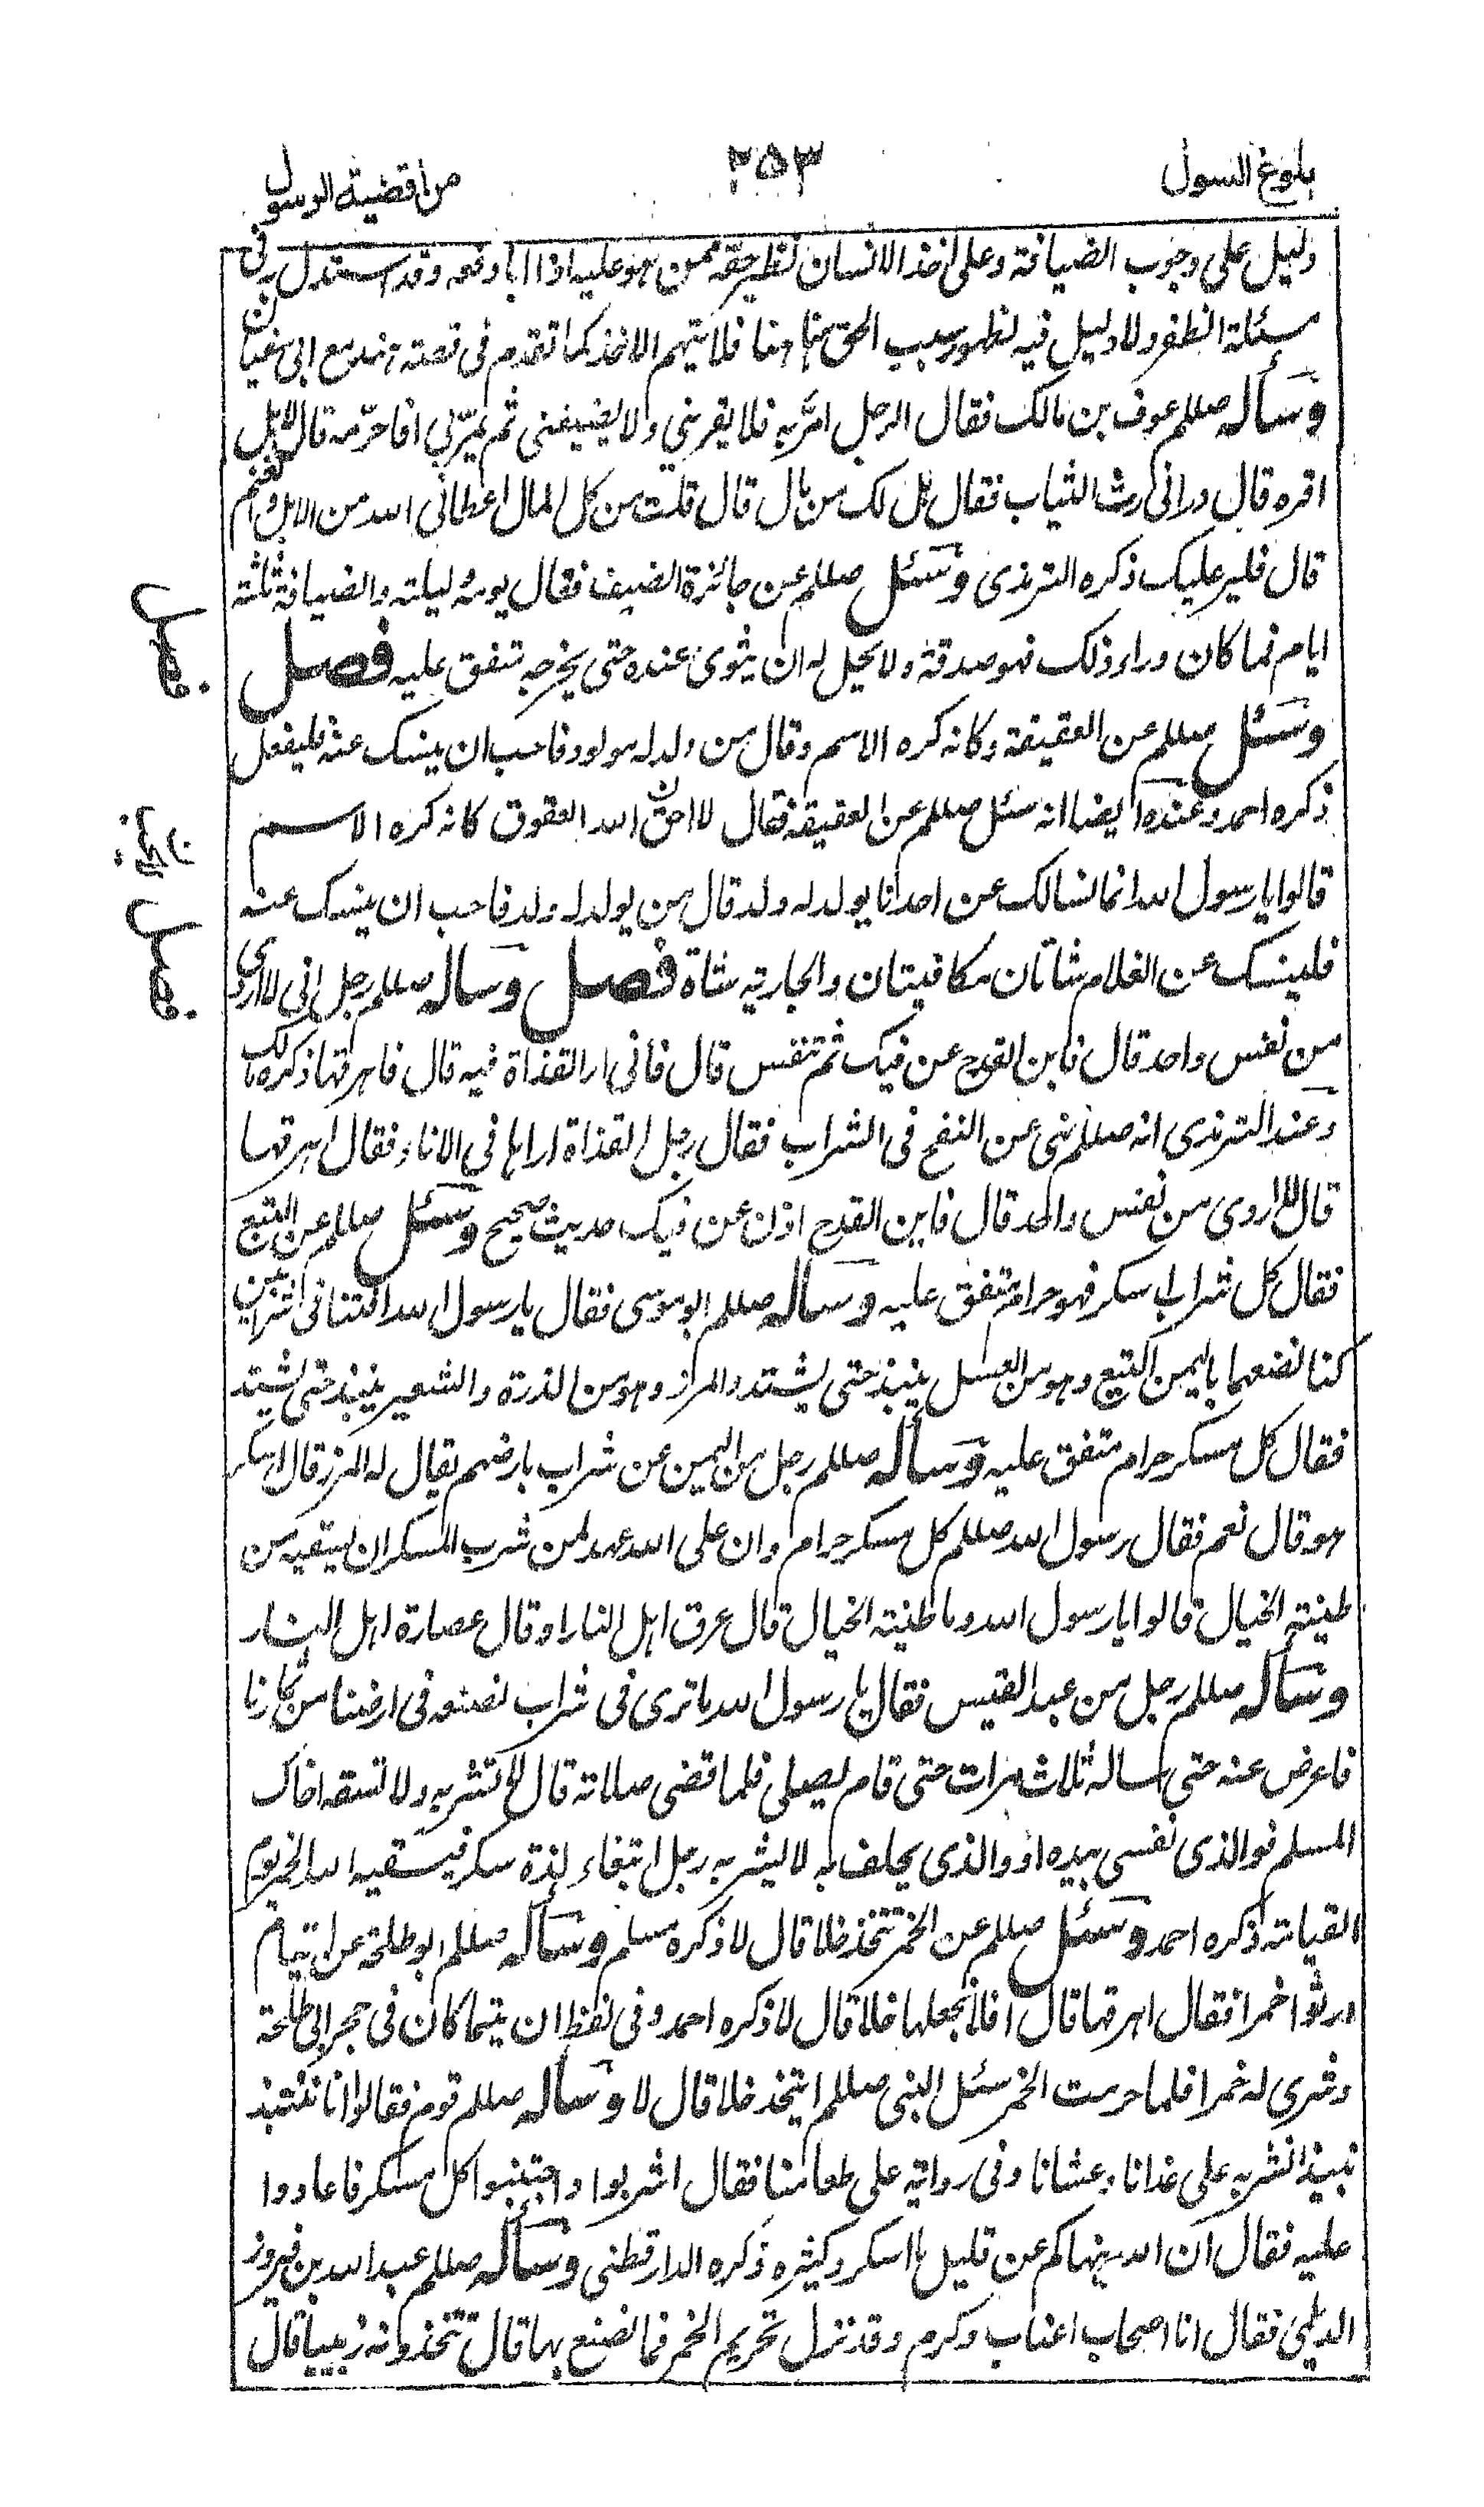 بلوغ السول
٢٥٣
من اقضية الرسول
دليل على وجوب الضيافة وعلى اخذ الانسان نظير حقه ممن هو عليه اذا اباد فعه وقد استدل به فى
مسئلة الظفر ولا دليل فيه لظهور سبب الحق هنا فلا يتهم الاخذ كما تقدم فى قصة هند مع ابى سفيان
وسأله صللم عوف بن مالك فقال الرجل امرّ به فلا يقرنى ولا يضيفنى ثم يمرّ بى افاجزيه قال لا بل
اقره قال ورانى رث الثياب فقال هل لك من مال قال قلت من كل المال اعطانى الله من الابل والغنم
قال فلير عليك ذكره الترمذى وسئل صللم عن جائزة الضيف فقال يومه وليلته والضيافة ثلثة
ايام فما كان وراء ذلك فهو صدقة ولا يحل له ان يثوى عنده حتى يخرجه متفق عليه فصل
وسئل صللم عن العقيقة وكانه كره الاسم وقال من ولد له مولود فاحب ان ينسك عنه فليفعل
ذكره احمد وعنده ايضا انه سئل صللم عن العقيقة فقال لا احق الله العقوق كانه كره الاسم
قالوا يا رسول الله انما نسالك عن احدنا يولد له ولد قال من يولد له ولد فاحب ان ينسك عنه
فلينسك عن الغلام شاتان مكافيتان والجارية شاة فصل وساله صللم رجل انى لا اروى
من نفس واحد قال فابن القدح عن فيك ثم تنفس قال فانى ارا القذاة فيه قال فاهرقها ذكره مالك
وعند الترمذى انه صللم نهى عن النفخ فى الشراب فقال رجل القذاة اراها فى الاناء فقال اهرقها
قال لا اروى من نفس واحد قال فابن القدح اذن عن فيك حديث صحيح وسئل صللم عن البتع
فقال كل شراب اسكر فهو حرام متفق عليه وساله صللم ابو موسى فقال يا رسول الله افتنا فى شرابين
كنا نصنعهما باليمن البتع وهو من العسل ينبذ حتى يشتد والمزر وهو من الذرة والشعير ينبذ حتى يشتد
فقال كل مسكر حرام متفق عليه وسأله صللم رجل من اليمن عن شراب بارضهم يقال له المزر قال امسكر
هو قال نعم فقال رسول الله صللم كل مسكر حرام وان على الله عهد لمن شرب المسكر ان يسقيه من
طينة الخبال قالوا يا رسول الله وما طينة الخبال قال عرق اهل النار او قال عصارة اهل النار
وسأله صللم رجل من عبد القيس فقال يا رسول الله ما ترى فى شراب نصنعه فى ارضنا من ثمارنا
فاعرض عنه حتى ساله ثلاث مرات حتى قام يصلى فلما قضى صلاته قال لا تشربه ولا تسقه اخاك
المسلم فو الذى نفسى بيده او والذى يحلف به لا يشربه رجل ابتغاء لذة سكر فيسقيه الله الخمر يوم
القيامة ذكره احمد وسئل صللم عن الخمر تتخذ خلا قال لا ذكره مسلم وسأله صللم ابو طلحة عن ايتام
ورثوا خمرا فقال اهرقها قال افلا نجعلها خلا قال لا ذكره احمد وفى لفظ ان يتيما كان فى حجر ابى طلحة
وشرى له خمرا فلما حرمت الخمر سئل النبى صللم ايتخذ خلا قال لا وسأله صللم قوم فقالوا انا ننتبذ
نبيذا نشربه على غدانا وعشانا وفى رواية على طعامنا فقال اشربوا واجتنبوا كل مسكر فاعادوا
عليه فقال ان الله ينهاكم عن قليل ما اسكر وكثيره ذكره الدارقطنى وسأله صللم عبد الله بن فيروز
الديلمى فقال انا اصحاب اعناب وكرم وقد نزل تحريم الخمر فما نصنع بها قال تتخذونه زبيبا قال
فصل
فصل